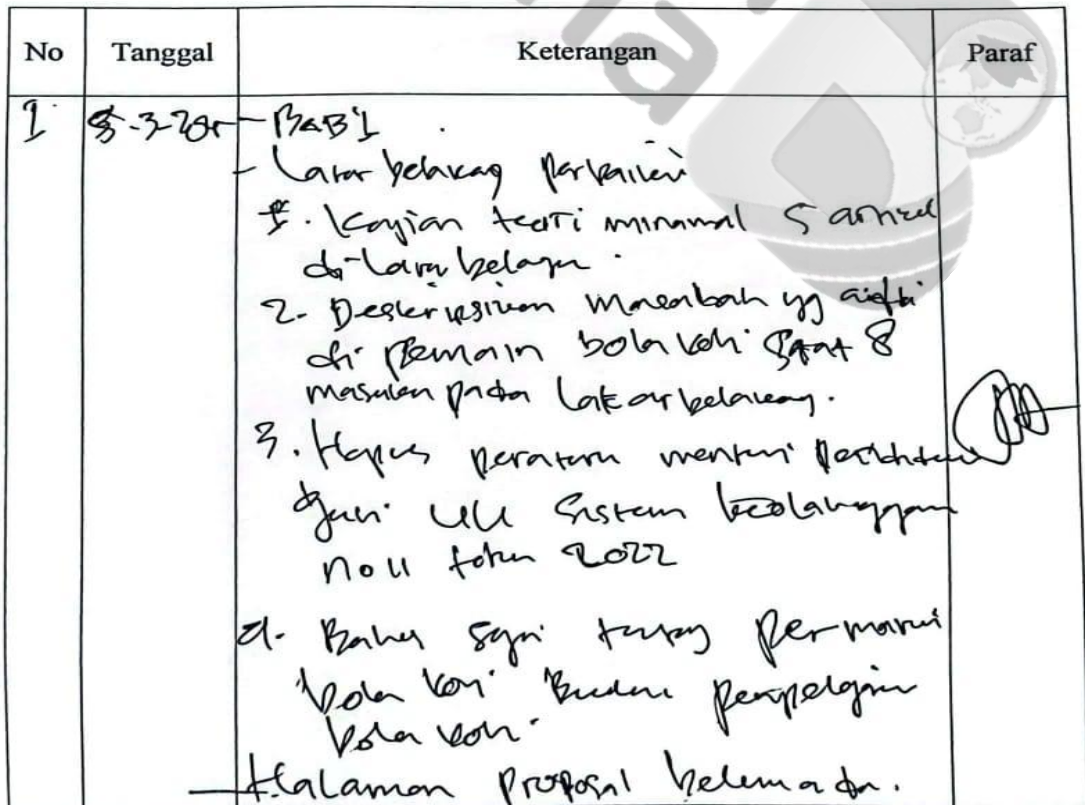 No Tanggal Keterangan Paraf
1 - BAB 1
- Latar belakang perbaiki
1. Kajian teori minimal 5 artikel
di latar belakang.
2. Deskripsikan masalah yg
di pemain bola voli
masukan pada latar belakang.
3. Hapus peraturan menteri
UU Sistem keolahragaan
no 11 tahun 2022
Bahas saja tentang permainan
bola voli
bola voli.
- Halaman proposal belum ada.